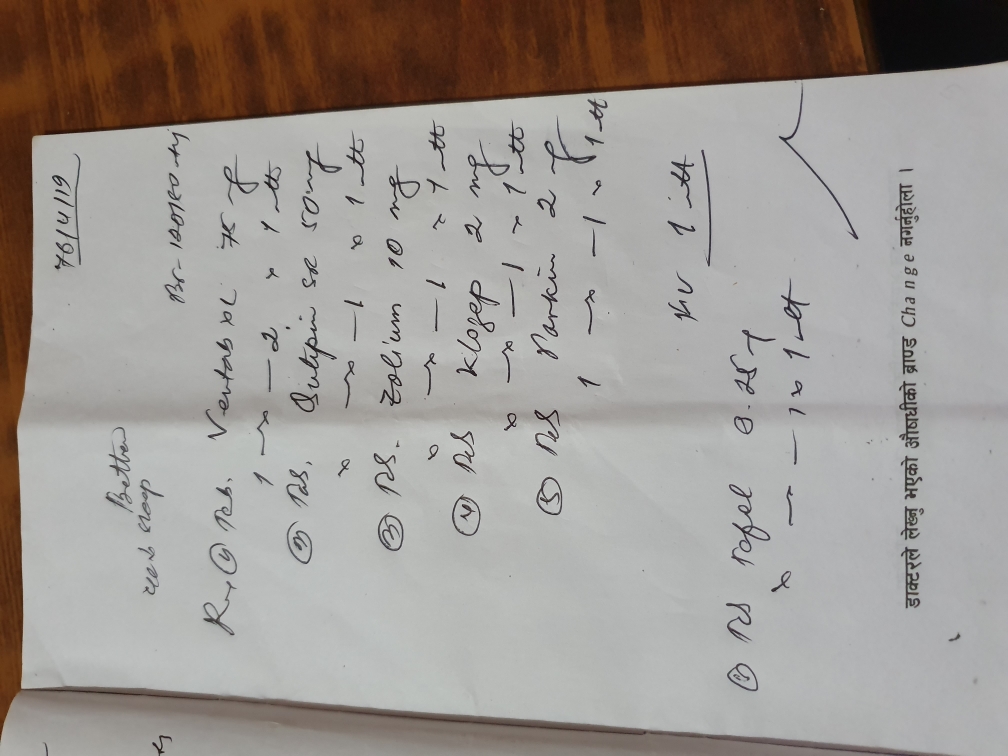 76/4/19
Better
BP- 120/80
Rx ① Tab. Ventab XL 75 mg
1 —x —2 x 1 mth
② Tab. Qutipin SR 50 mg
x —x —1 x 1 mth
③ Tab. Zolium 10 mg
x —x —1 x 1 mth
④ Tab Klozep 2 mg
x —x —1 x 1 mth
⑤ Tab Parkin 2 mg
1 —x —1 x 1 mth
1 mth
① Tab 0.25
x —x —1 x 1 mth
डाक्टरले लेख्नु भएको औषधीको ब्राण्ड Change नगर्नुहोला ।